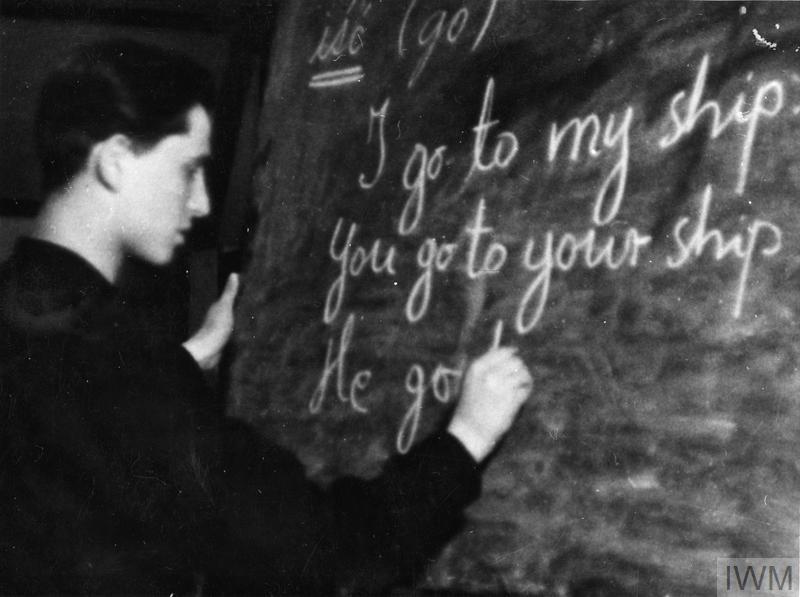 isć (go)
I go to my ship.
You go to your ship
He go
IWM